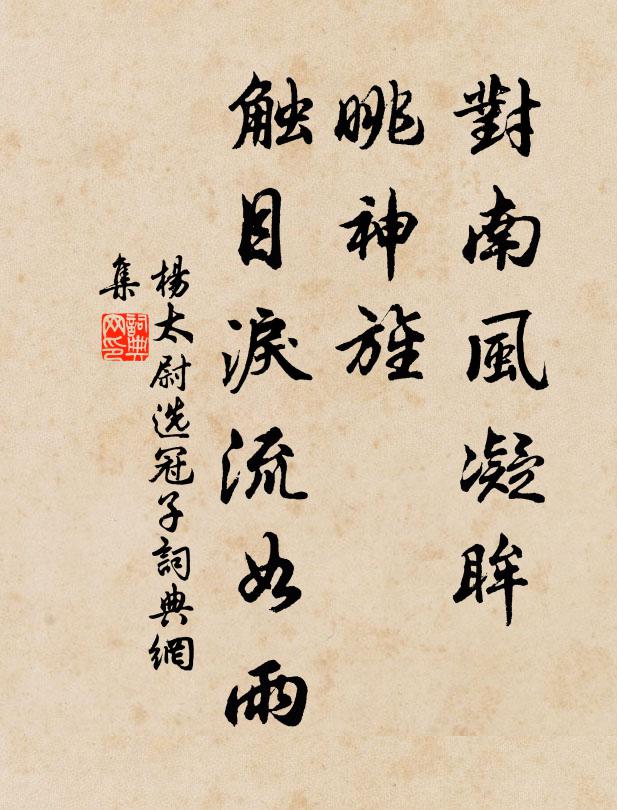 對南風凝眸
眺神旌
触目淚流如雨
楊太尉选冠子詞典網
集
詞典網印